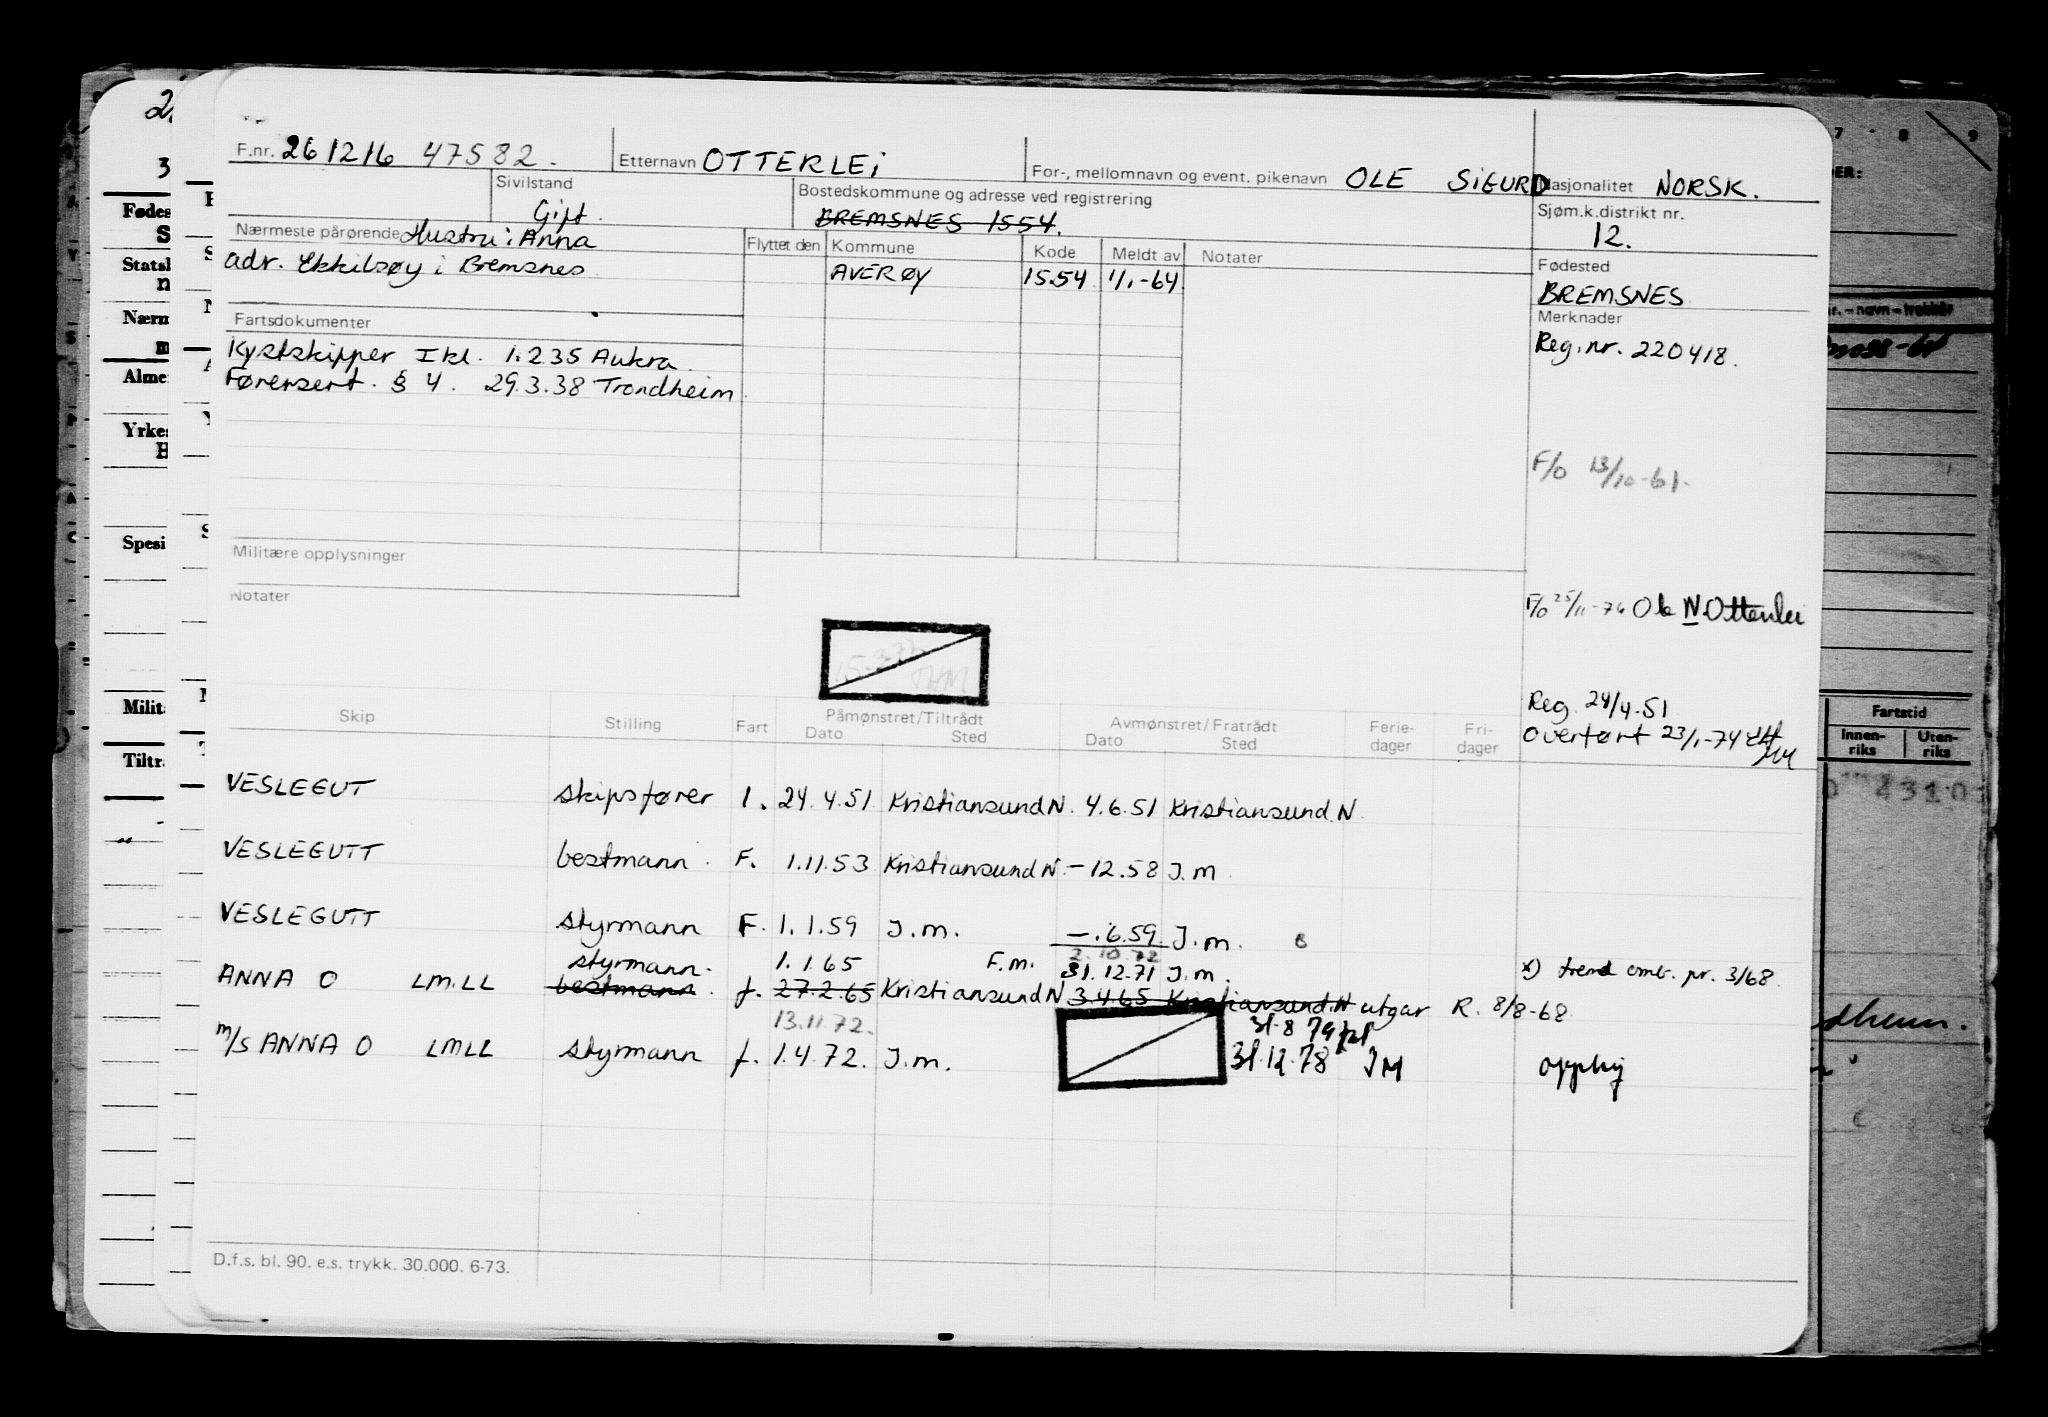 F.nr. 261216 47582. Etternavn OTTERLEi For-, mellomnavn og event. pikenavn OLE SIGURD Nasjonalitet NORSK.
Sivilstand Gift. Bostedskommune og adresse ved registrering Sjøm.k.distrikt nr.
BREMSNES 1554. 12.
Nærmeste pårørende Hustru: Anna Flyttet den Kommune Kode Meldt av Notater Fødested
adr. Ekkilsøy i Bremsnes AVERØY 1554 1/1-64 BREMSNES
Fartsdokumenter Merknader
Kystskipper I kl. 1.2.35 Aukra. Reg.nr. 220418.
Førersert. § 4. 29.3.38 Trondheim
F/o 13/10-61.
Militære opplysninger
Notater F/o 25/11-76 Ole N. Otterlei
Reg. 24/4-51
Skip Stilling Fart Påmønstret/Tiltrådt Avmønstret/Fratrådt Ferie- Fri- Overført 23/1-74
Dato Sted Dato Sted dager dager
VESLEGUT skipsfører I. 24.4.51 Kristiansund N. 4.6.51 Kristiansund N.
VESLEGUTT bestmann. F. 1.11.53 Kristiansund N. -12.58 J.m
VESLEGUTT styrmann F. 1.1.59 J.m. -.6.59 J.m.
2.10.72
styrmann. 1.1.65 F.m. 31.12.71 J.m. x) trend omb. pr. 3/68.
ANNA O LMLL bestmann. f. 27.2.65 Kristiansund N 3.4.65 Kristiansund N utgar R. 8/8-68
13.11.72. 31.8 79
m/s ANNA O LMLL styrmann f. 1.4.72. J.m. 31.12.78 JM opphøj
D.f.s. bl. 90. e.s. trykk. 30.000. 6-73.
Fødes
Statsl
Nærn
Alme
Yrkes
Spesi
Milit
Tiltr
7 8 9
DER:
Fartstid
Innen-
riks
Uten-
riks